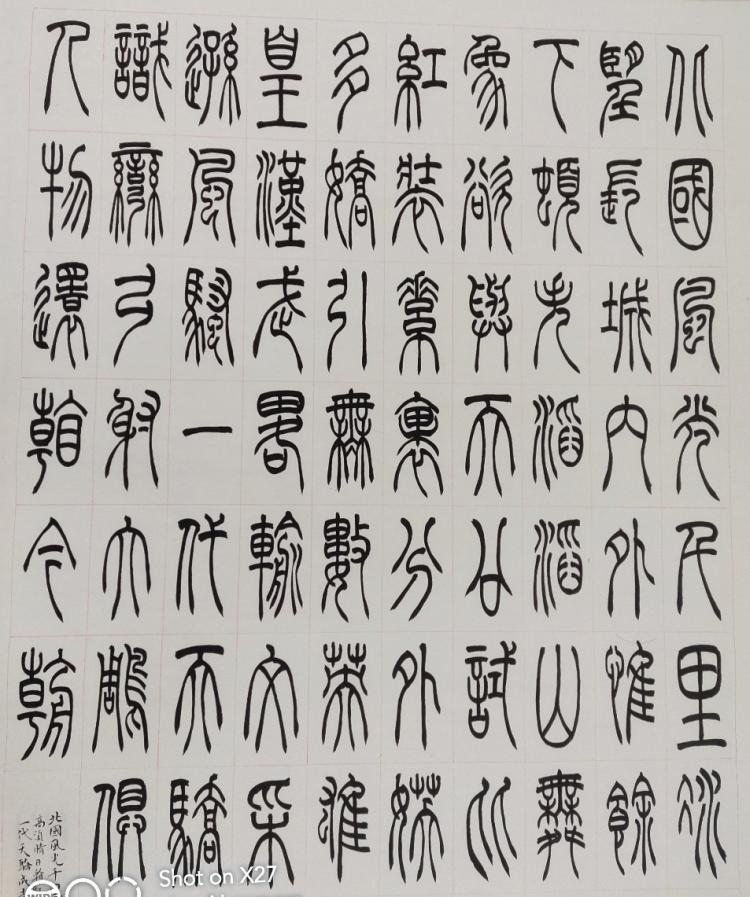 北國風光千里冰
望長城內外惟餘
下頓失滔滔山舞
象欲與天公試比
紅裝素裹分外妖
多嬌引無數英雄
皇漢武略輸文采
遜風騷一代天驕
識彎弓射大雕俱
人物還看今朝
北國風光千
高須晴日
一代天驕成
Shot on X27